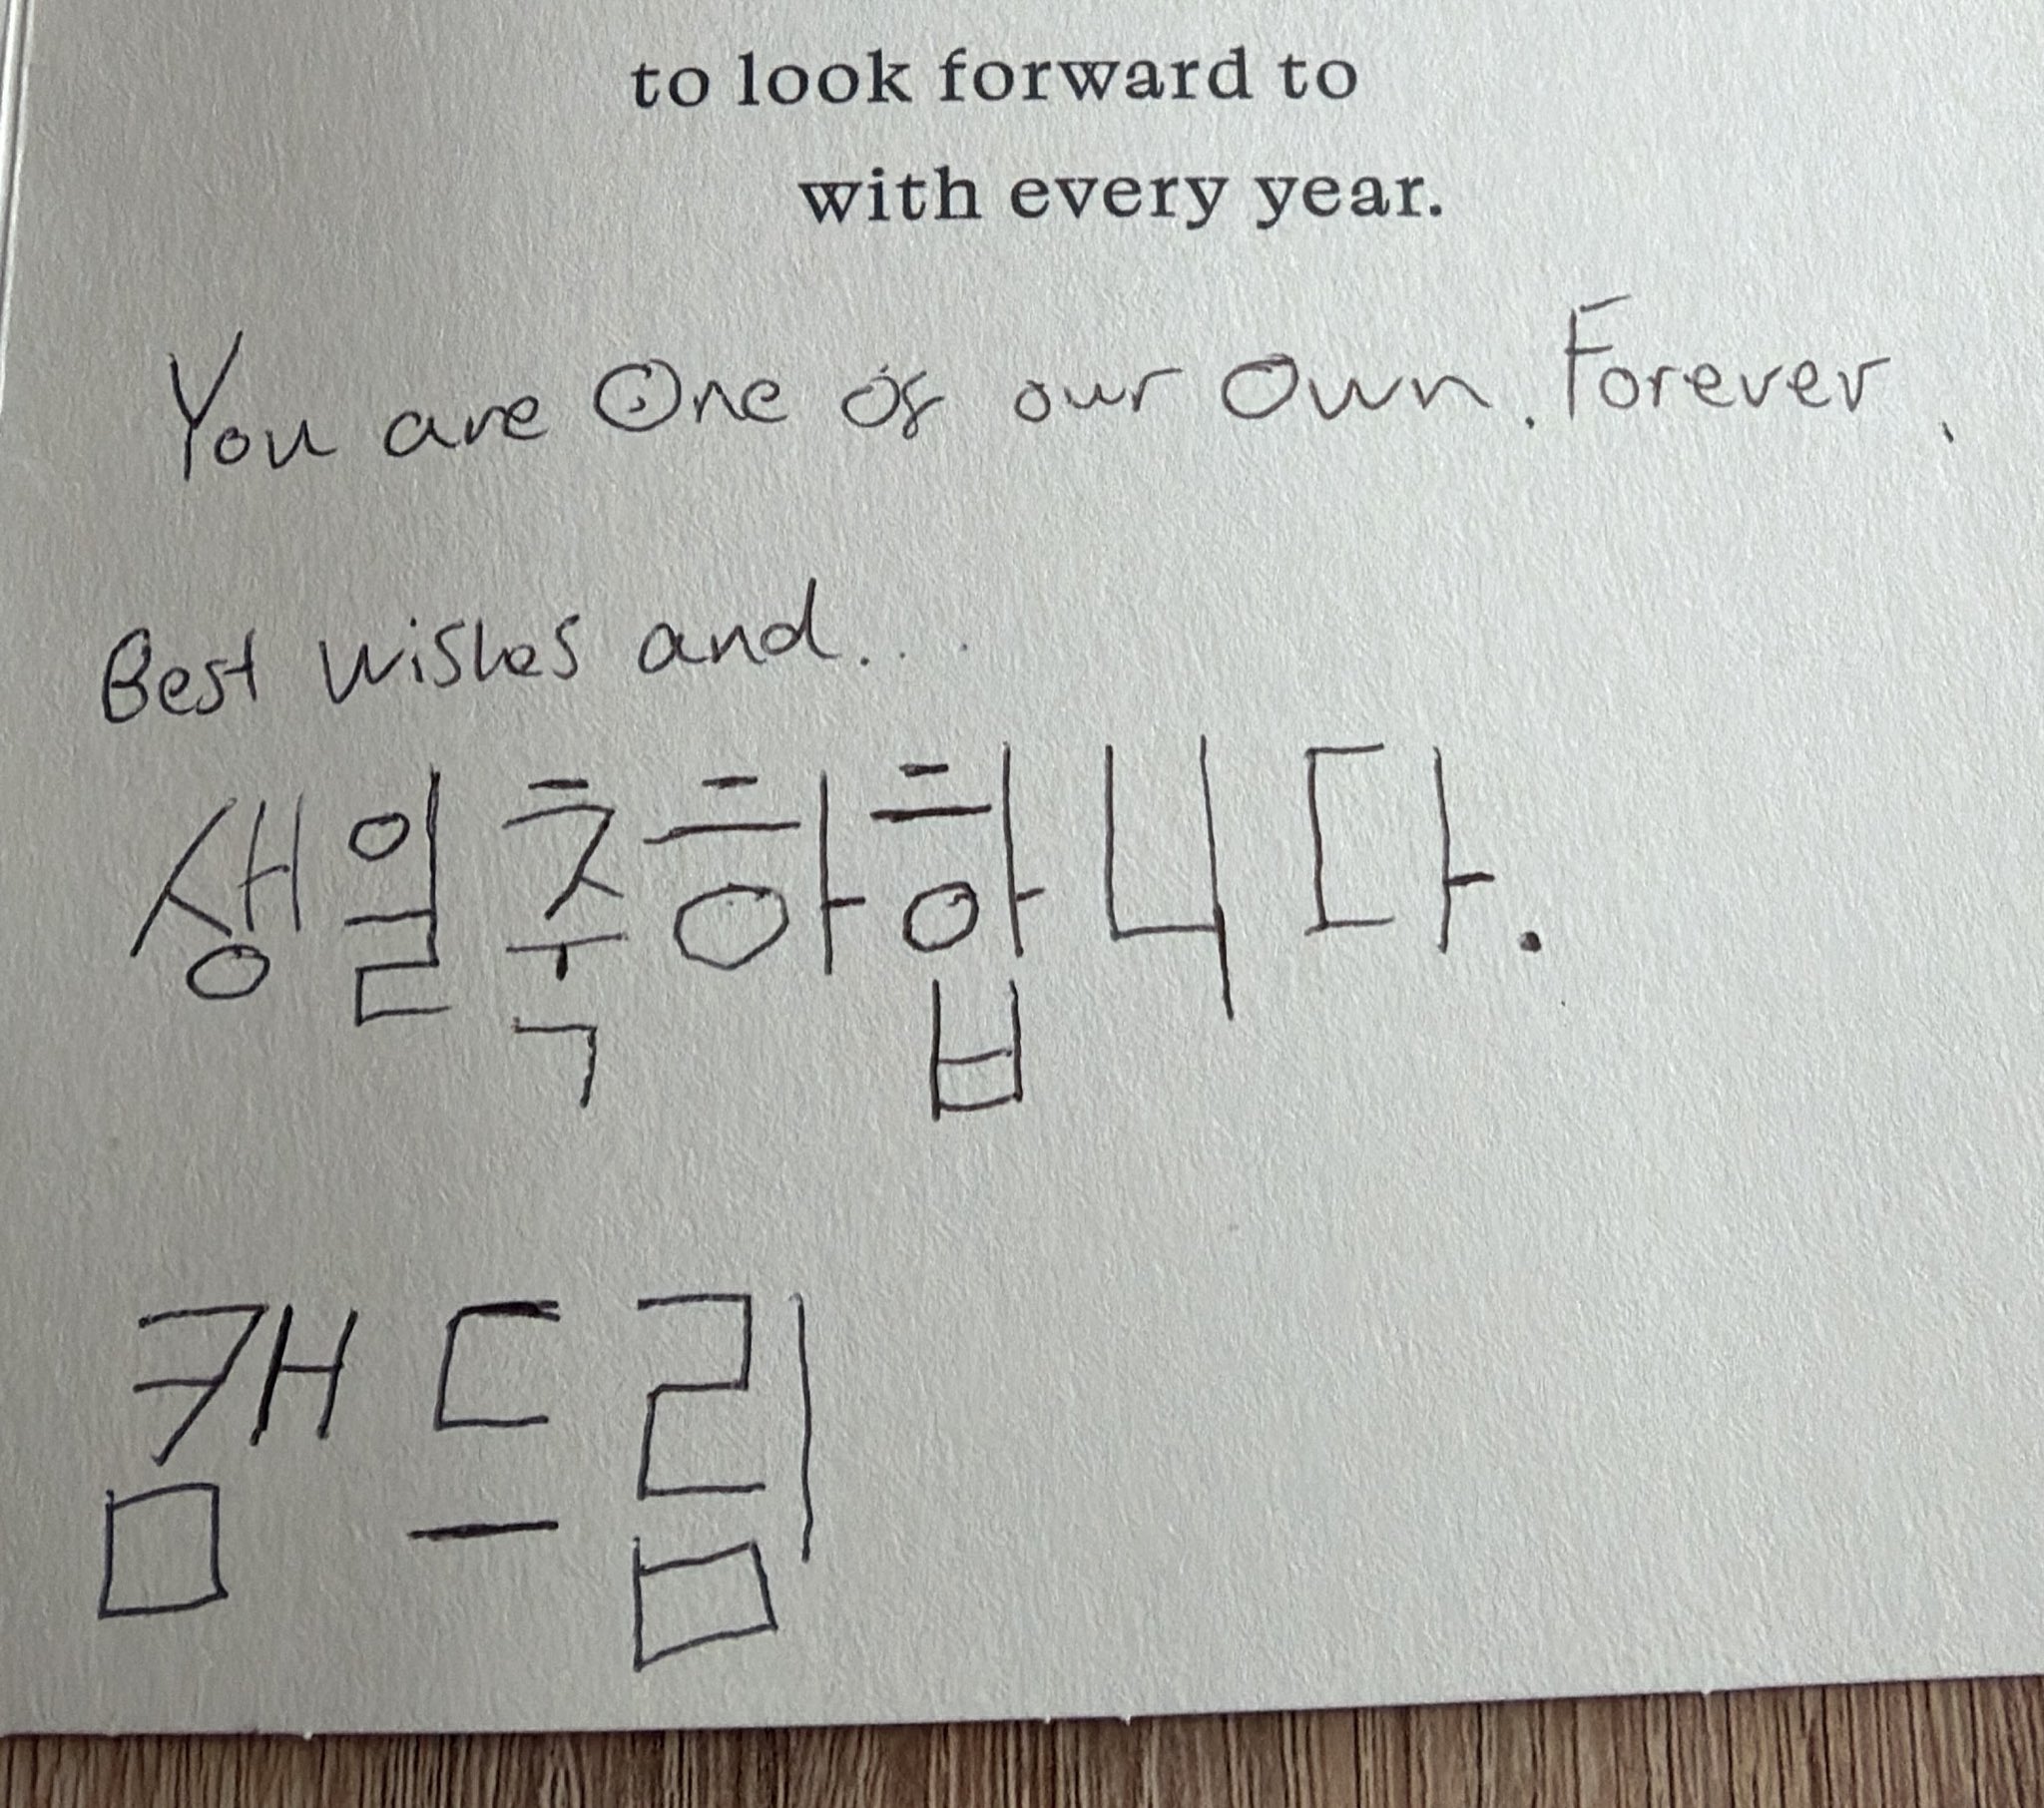 to look forward to
with every year.
You are One of our Own. Forever.
Best wishes and...
생일축하합니다.
캠드림